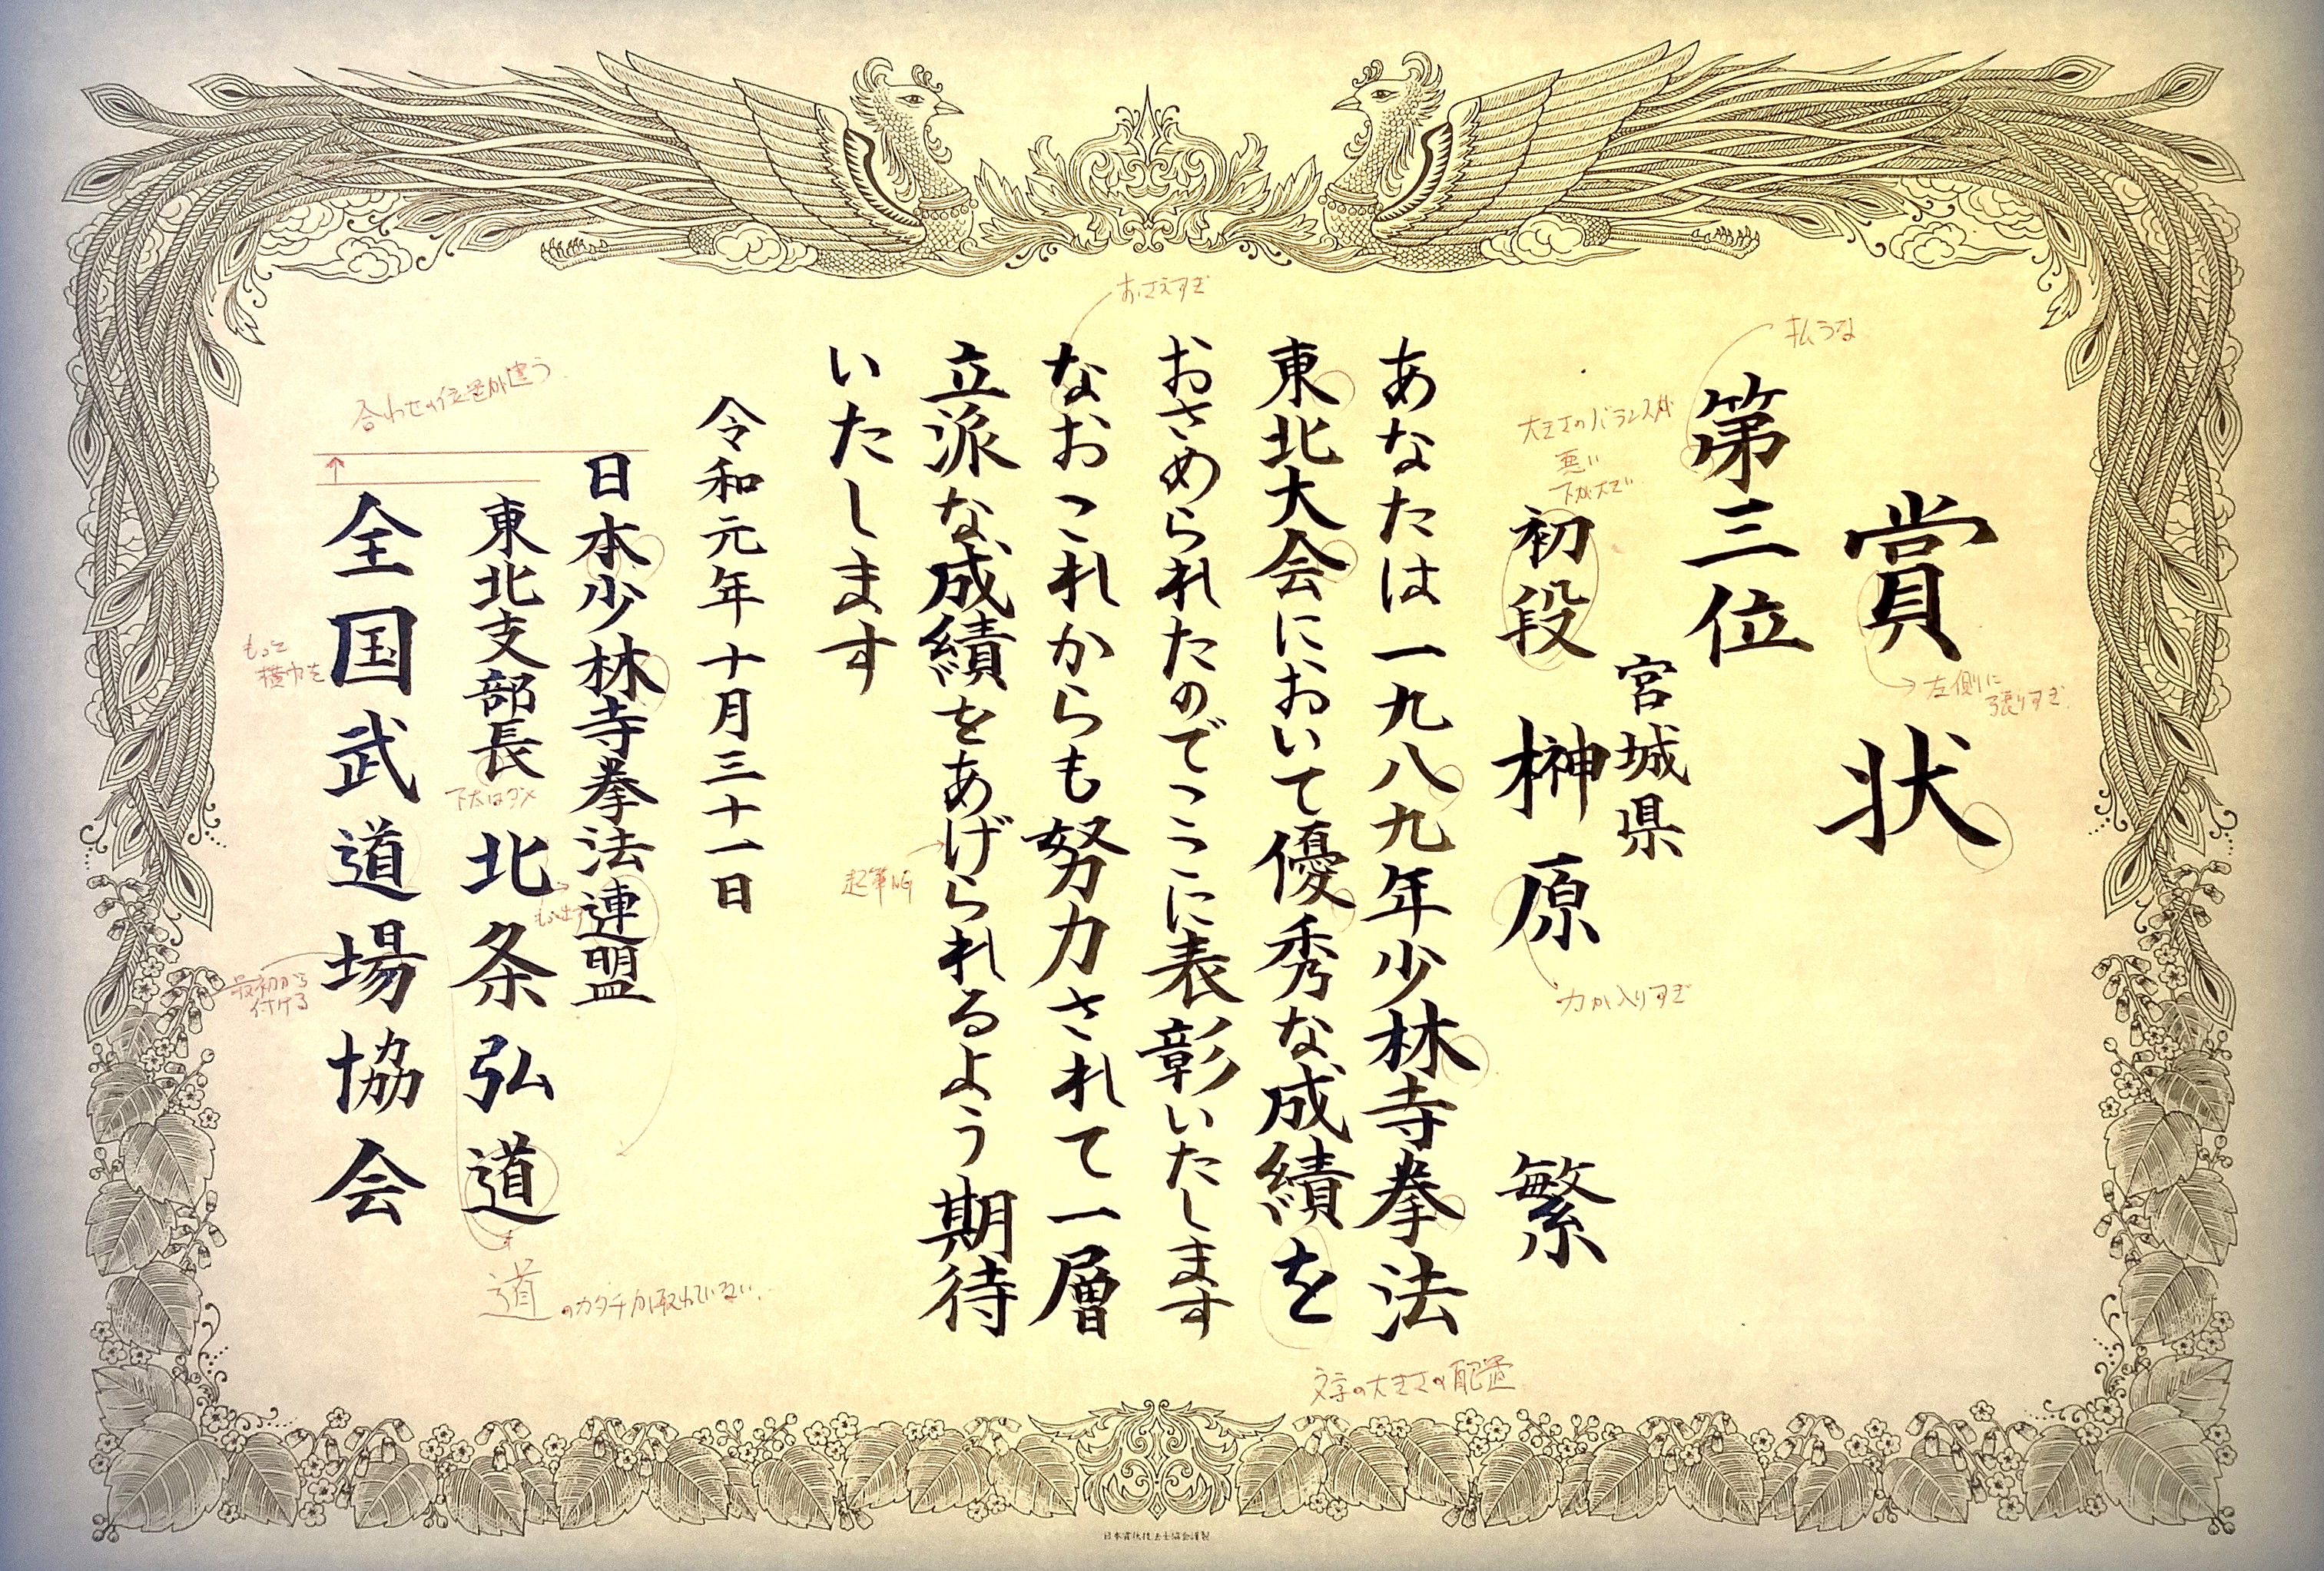 賞状
第三位
宮城県
初段 榊原 繁
あなたは一九八九年少林寺拳法
東北大会において優秀な成績を
おさめられたのでここに表彰いたします
なおこれからも努力されて一層
立派な成績をあげられるよう期待
いたします
令和元年十月三十一日
日本少林寺拳法連盟
東北支部長 北条弘道
全国武道場協会
払うな
左側に
張りすぎ
大きさのバランスが
悪い
下が大きい
力が入りすぎ
おさえすぎ
文字の大きさの配置
起筆NG
合わせの位置が違う
下太はダメ
もっと
横巾を
最初から
付ける
道のカタチが取れていない。